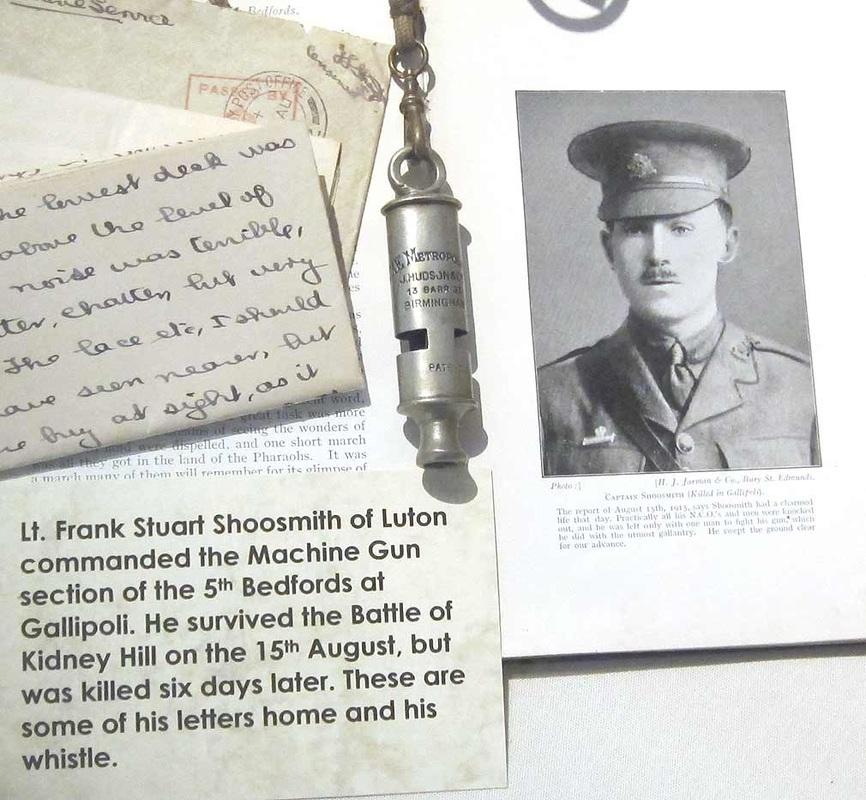 Service
Bedfords.
PASSED BY
POST OFFICE
lowest deck was
above the level of
noise was terrible,
chatter, but very
The lace etc, I should
have seen nearer, but
buy at sight, as it
word,
great task was more
of seeing the wonders of
were dispelled, and one short march
they got in the land of the Pharaohs. It was
a march many of them will remember for its glimpse of
J.HUDSON &
13 BARR ST
BIRMINGHAM
Photo:] [H. J. Jarman & Co., Bury St. Edmunds.
CAPTAIN SHOOSMITH (Killed in Gallipoli).
The report of August 15th, 1915, says Shoosmith had a charmed
life that day. Practically all his N.C.O.'s and men were knocked
out, and he was left only with one man to fight his gun, which
he did with the utmost gallantry. He swept the ground clear
for our advance.
Lt. Frank Stuart Shoosmith of Luton
commanded the Machine Gun
section of the 5th Bedfords at
Gallipoli. He survived the Battle of
Kidney Hill on the 15th August, but
was killed six days later. These are
some of his letters home and his
whistle.